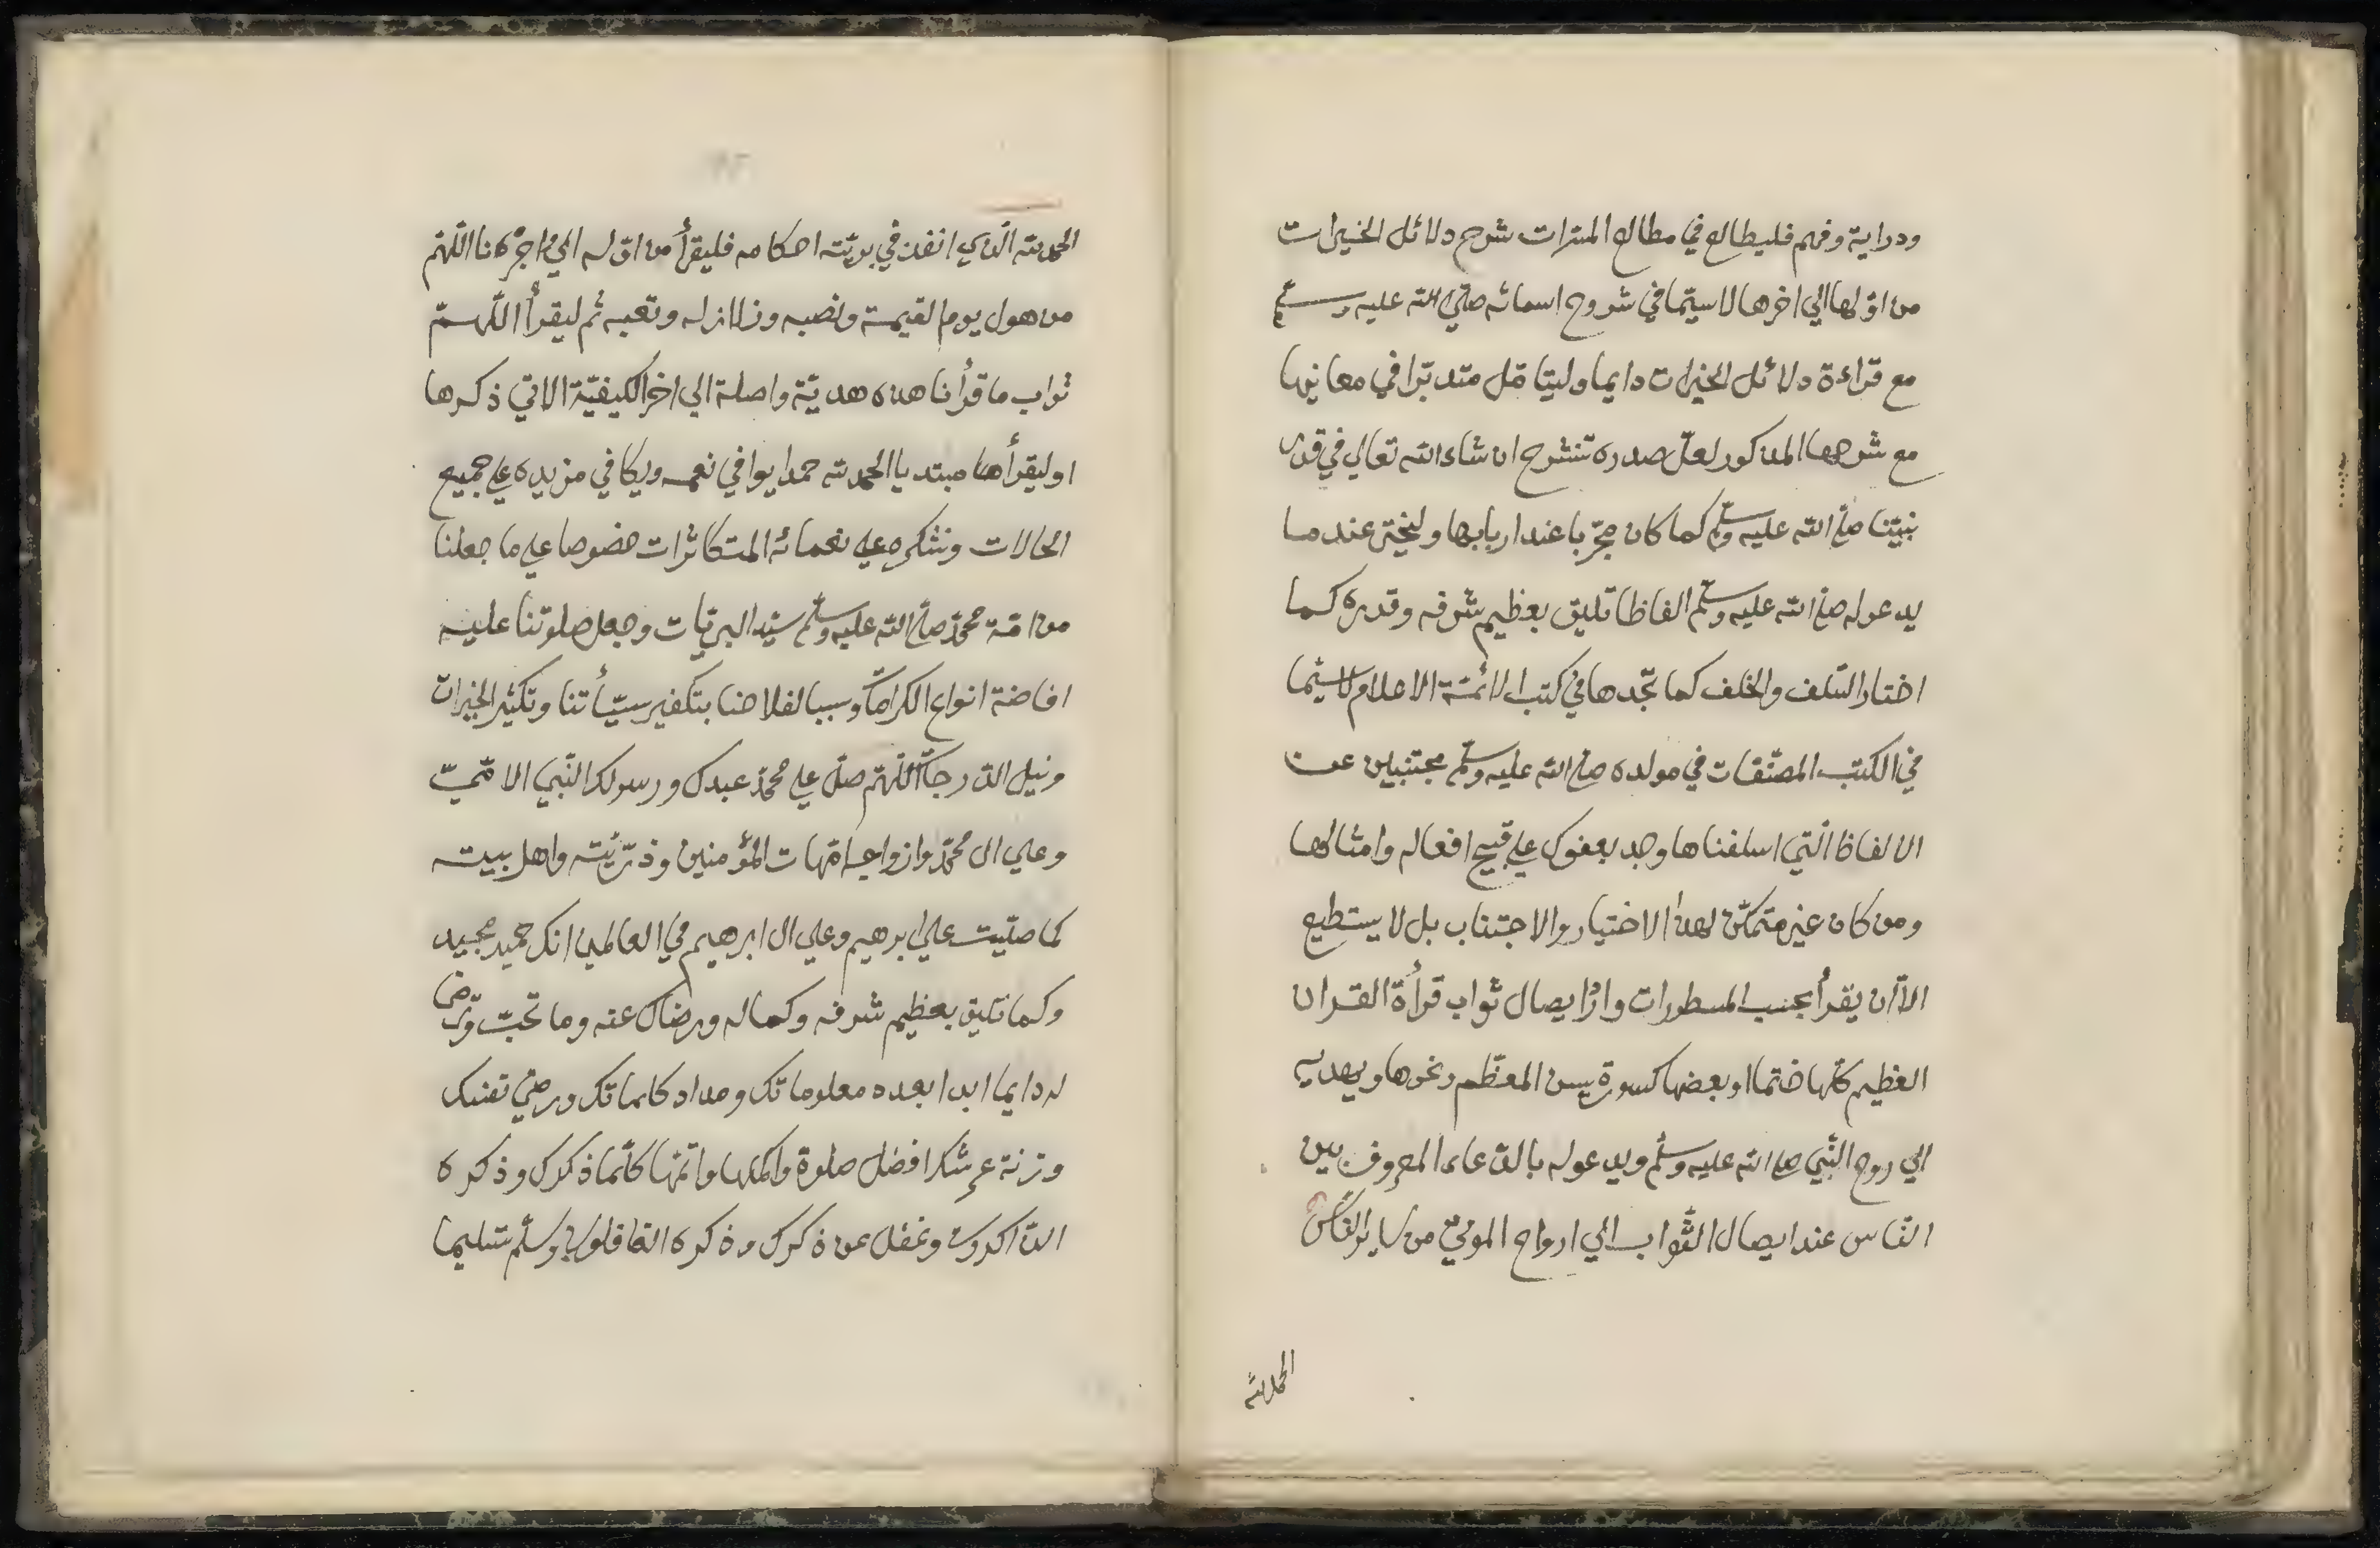 ودراية وفهم فليطالع في مطالع المسرات شرح دلائل الخيرات
من اوّلها الي اخرها لاسيّما في شروح اسمائه صلّي الله عليه وسلّم
مع قراءة دلائل الخيرات دايما وليتامّل متدبّرا في معانيها
مع شرحها المذكور لعلّ صدره تنشرح ان شاء الله تعالي في قدر
نبيّنا صلي الله عليه وسلّم كما كان مجرّبا عند اربابها وليختر عند ما
يدعو له صلي الله عليه وسلّم الفاظا تليق بعظيم شرفه وقدره كما
اختار السّلف والخلف كما تجدها في كتب الائمّة الاعلام لاسيّما
في الكتب المصنّفات في مولده صلي الله عليه وسلّم مجتنبين عن
الالفاظ الّتي اسلفناها وجد بعفوك علي قبيح افعاله وامثالها
ومن كان غير متمكّن لهذا الاختيار والاجتناب بل لا يستطيع
الاّ ان يقرأ بحسب المسطورات واراد ايصال ثواب قرأة القران
العظيم كلّها ختما او بعضها كسورة يسن المعظّم ونحوها ويهديه
الي روح النّبي صلي الله عليه وسلّم ويدعو له بالدّعاء المعروف بين
النّاس عند ايصال الثّواب الي ارواح الموتي من ساير النّاس
الحمد لله
الحمد لله الّذي انفذ في بريّته احكامه فليقرأ من اوّله الي اجرنا اللّهمّ
من هول يوم القيمة ونصبه وزلازله وتعبه ثم ليقرأ اللّهمّ
ثواب ما قرأنا هذه هديّة واصلة الي اخر الكيفيّة الاتي ذكرها
او ليقرأها مبتديا الحمد لله حمدا يوافي نعمه ويكافي مزيده علي جميع
الحالات ونشكره علي نعمائه المتكاثرات خصوصا علي ما جعلنا
من امّة محمّد صلي الله عليه وسلّم سيّد البريّات وجعل صلوتنا عليه
افاضة انواع الكرامات وسببا لفلاحنا بتكفير سيّأتنا وتكثير الخيرات
ونيل الدّرجات اللّهمّ صلّ علي محمّد عبدك ورسولك النّبي الامّيّ
وعلي ال محمّد وازواجه امّهات المؤمنين وذرّيّته واهل بيته
كما صلّيت علي ابرهيم وعلي ال ابرهيم في العالمين انك حميد مجيد
وكما تليق بعظيم شرفه وكماله ورضاك عنه وما تحبّ وترضي
له دايما ابدا بعدد معلوماتك ومداد كلماتك ورضي نفسك
وزنة عرشك افضل صلوة واكملها واتمّها كلّما ذكرك وذكره
الذّاكرون وغفل عن ذكرك وذكره الغافلون وسلّم تسليما